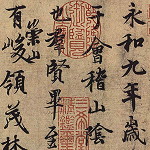 永和九年歲
于會稽山陰
也羣賢畢至
有崇山峻領茂林